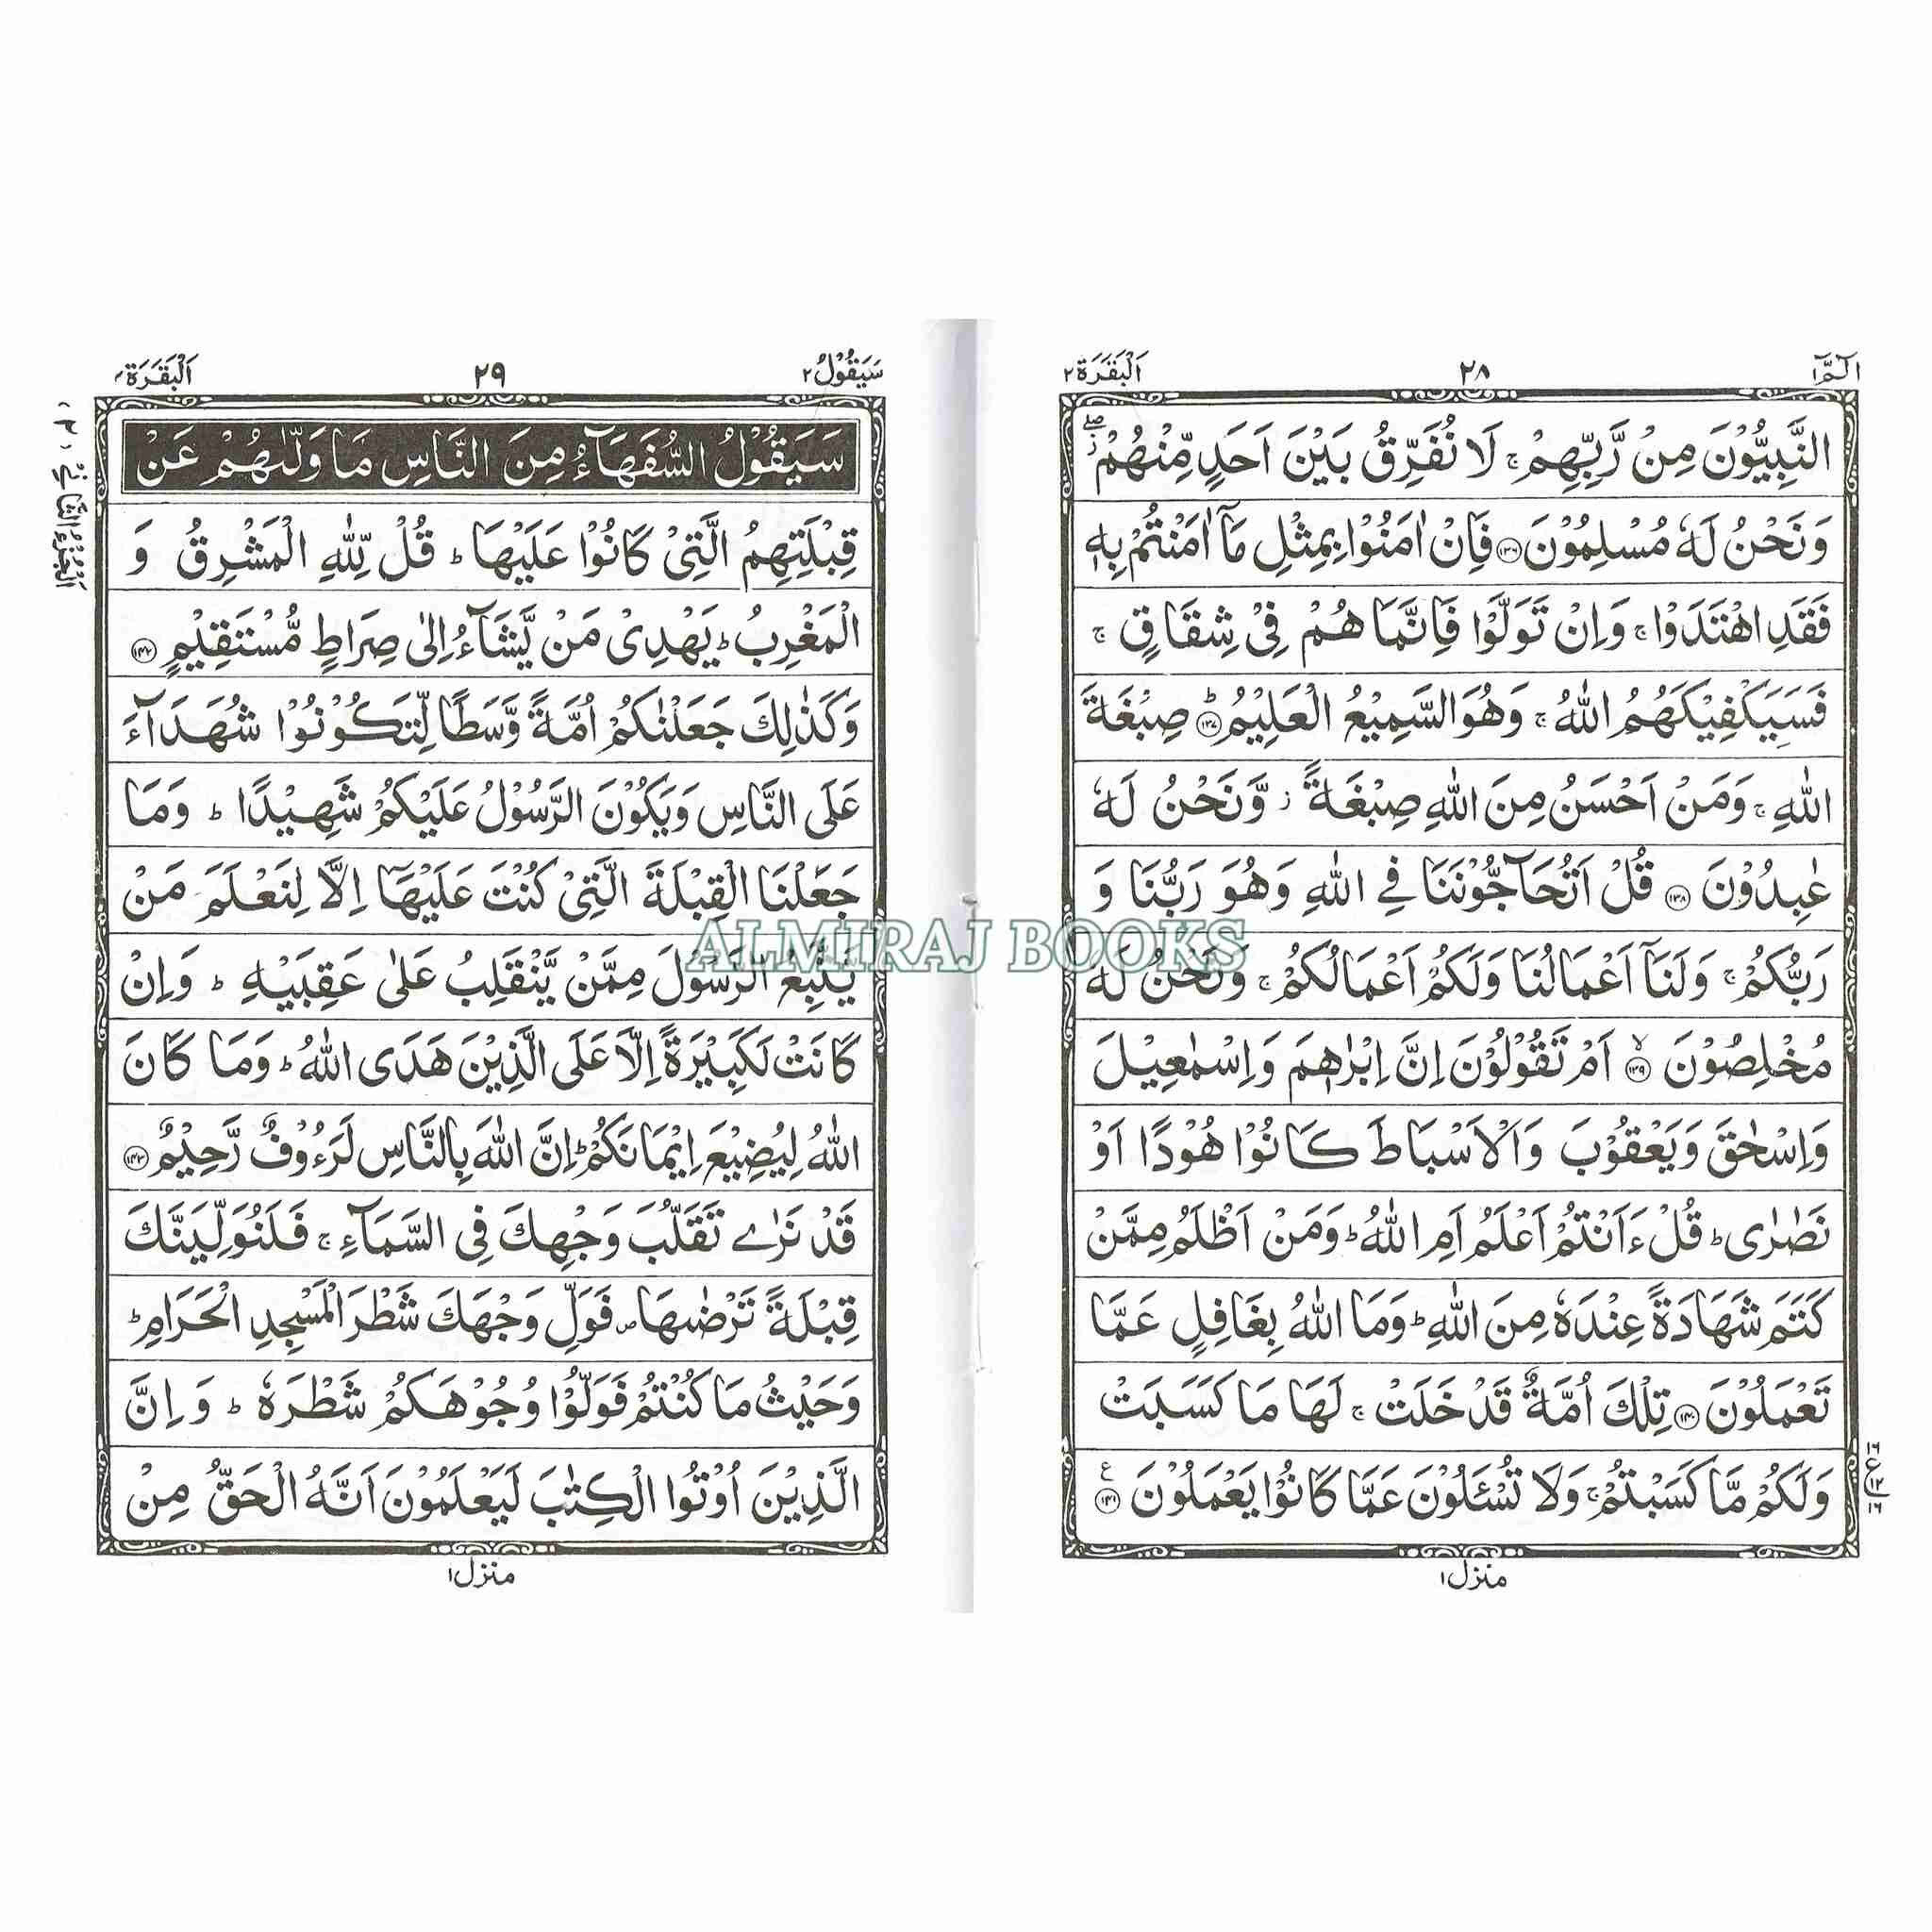 الٓمّٓ ١
٢٨
اَلْبَقَرَة ٢
النَّبِيُّوْنَ مِنْ رَّبِّهِمْ ۚ لَا نُفَرِّقُ بَيْنَ اَحَدٍ مِّنْهُمْ ۖ ز
وَنَحْنُ لَهٗ مُسْلِمُوْنَ ﴿۱۳۶﴾ فَاِنْ اٰمَنُوْا بِمِثْلِ مَآ اٰمَنْتُمْ بِهٖ
فَقَدِ اهْتَدَوْا ۚ وَاِنْ تَوَلَّوْا فَاِنَّمَا هُمْ فِيْ شِقَاقٍ ۚ
فَسَيَكْفِيْكَهُمُ اللّٰهُ ۚ وَهُوَ السَّمِيْعُ الْعَلِيْمُ ﴿۱۳۷﴾ؕ صِبْغَةَ
اللّٰهِ ۚ وَمَنْ اَحْسَنُ مِنَ اللّٰهِ صِبْغَةً ز وَّنَحْنُ لَهٗ
عٰبِدُوْنَ ﴿۱۳۸﴾ قُلْ اَتُحَآجُّوْنَنَا فِي اللّٰهِ وَهُوَ رَبُّنَا وَ
رَبُّكُمْ ۚ وَلَنَآ اَعْمَالُنَا وَلَكُمْ اَعْمَالُكُمْ ۚ وَنَحْنُ لَهٗ
مُخْلِصُوْنَ ﴿۱۳۹﴾ۙ اَمْ تَقُوْلُوْنَ اِنَّ اِبْرٰهٖمَ وَاِسْمٰعِيْلَ
وَاِسْحٰقَ وَيَعْقُوْبَ وَالْاَسْبَاطَ كَانُوْا هُوْدًا اَوْ
نَصٰرٰى ؕ قُلْ ءَاَنْتُمْ اَعْلَمُ اَمِ اللّٰهُ ؕ وَمَنْ اَظْلَمُ مِمَّنْ
كَتَمَ شَهَادَةً عِنْدَهٗ مِنَ اللّٰهِ ؕ وَمَا اللّٰهُ بِغَافِلٍ عَمَّا
تَعْمَلُوْنَ ﴿۱۴۰﴾ تِلْكَ اُمَّةٌ قَدْ خَلَتْ ۚ لَهَا مَا كَسَبَتْ
وَلَكُمْ مَّا كَسَبْتُمْ ۚ وَلَا تُسْئَلُوْنَ عَمَّا كَانُوْا يَعْمَلُوْنَ ﴿۱۴۱﴾ ع
١٦
ع ١٢
١٦
منزل ١
سَيَقُوْلُ ٢
٢٩
اَلْبَقَرَة ٢
سَيَقُوْلُ السُّفَهَآءُ مِنَ النَّاسِ مَا وَلّٰىهُمْ عَنْ
قِبْلَتِهِمُ الَّتِيْ كَانُوْا عَلَيْهَا ؕ قُلْ لِّلّٰهِ الْمَشْرِقُ وَ
الْمَغْرِبُ ؕ يَهْدِيْ مَنْ يَّشَآءُ اِلٰى صِرَاطٍ مُّسْتَقِيْمٍ ﴿۱۴۲﴾
وَكَذٰلِكَ جَعَلْنٰكُمْ اُمَّةً وَّسَطًا لِّتَكُوْنُوْا شُهَدَآءَ
عَلَى النَّاسِ وَيَكُوْنَ الرَّسُوْلُ عَلَيْكُمْ شَهِيْدًا ؕ وَمَا
جَعَلْنَا الْقِبْلَةَ الَّتِيْ كُنْتَ عَلَيْهَآ اِلَّا لِنَعْلَمَ مَنْ
يَّتَّبِعُ الرَّسُوْلَ مِمَّنْ يَّنْقَلِبُ عَلٰى عَقِبَيْهِ ؕ وَاِنْ
كَانَتْ لَكَبِيْرَةً اِلَّا عَلَى الَّذِيْنَ هَدَى اللّٰهُ ؕ وَمَا كَانَ
اللّٰهُ لِيُضِيْعَ اِيْمَانَكُمْ ؕ اِنَّ اللّٰهَ بِالنَّاسِ لَرَءُوْفٌ رَّحِيْمٌ ﴿۱۴۳﴾
قَدْ نَرٰى تَقَلُّبَ وَجْهِكَ فِي السَّمَآءِ ۚ فَلَنُوَلِّيَنَّكَ
قِبْلَةً تَرْضٰىهَا ص فَوَلِّ وَجْهَكَ شَطْرَ الْمَسْجِدِ الْحَرَامِ ؕ
وَحَيْثُ مَا كُنْتُمْ فَوَلُّوْا وُجُوْهَكُمْ شَطْرَهٗ ؕ وَاِنَّ
الَّذِيْنَ اُوْتُوا الْكِتٰبَ لَيَعْلَمُوْنَ اَنَّهُ الْحَقُّ مِنْ
اَلْجُزْءُ الثَّانِيْ (٢)
منزل ١
ALMIRAJ BOOKS